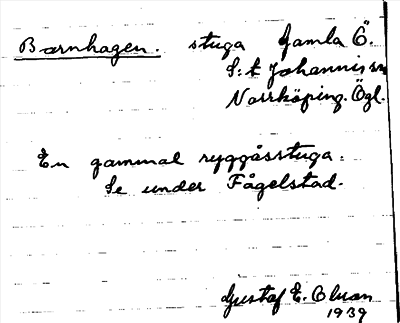 Barnhagen. stuga Gamla Ö.
S:t Johannis sn
Norrköping. Ögl.
En gammal ryggåsstuga.
Se under Fågelstad.
Gustaf E. Olson
1939